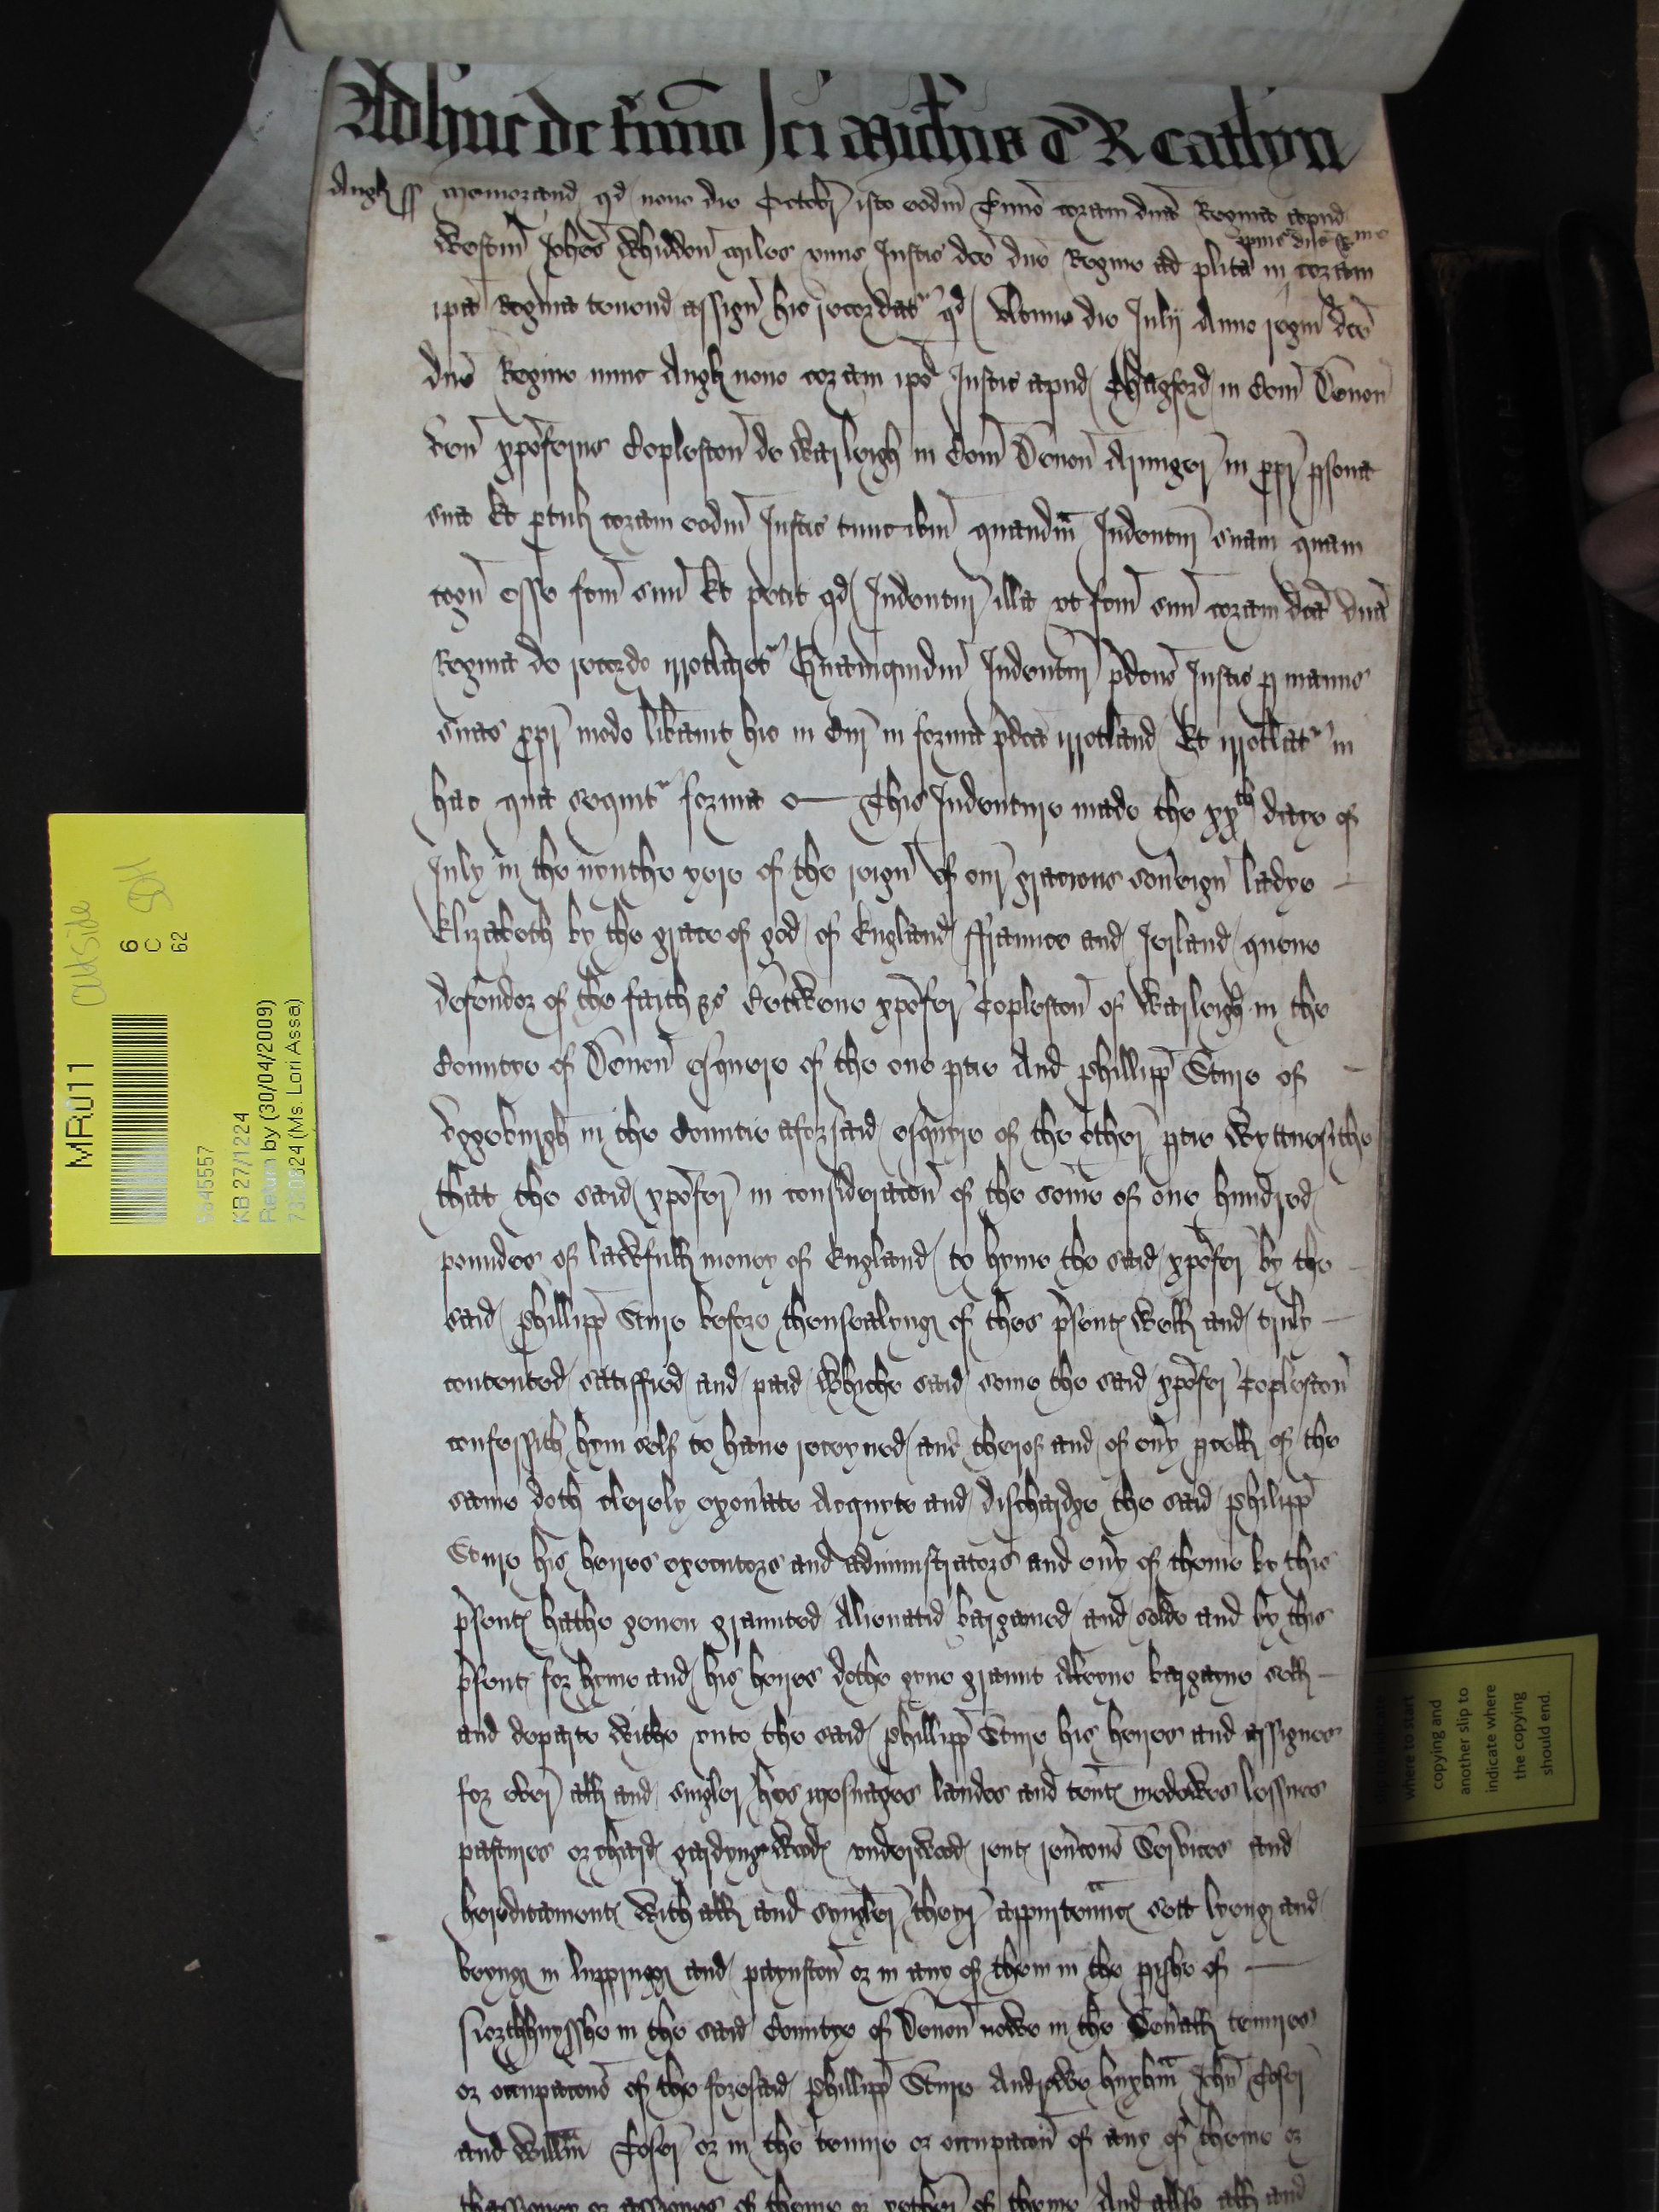 Adhuc de Termino Sci Michis R Catlyn
Angl ss Memorand qd nono die Octobr isto eodm Termio coram dna Regina apud
Westm Johes Whiddon miles unus Justic dce dne Regine ad plita in coram
ipa Regina tenend assign hic recordat qd die Julij Anno regni dce
dne Regine nunc Angl nono coram ipo Justic apud Chagford in Com Devon
ven xpoferus Copleston de Warleigh in Com Devon Armiger in ppr psona
sua Et ptulit coram eodm Justic tunc ibm quandm Indentur suam quam
cogn esse fcm suu Et petit qd Indentur illa ut fcm suu coram dca dna
Regina de recordo irrotlaret Quamquidm Indentur pdcus Justic p manus
suas ppr modo libavit hic in Cur in forma pdca irrotland Et irrotlat in
hac que sequit forma This Indenture made the xxth daye of
July in the nynthe yere of the reign of our gracious soveign ladye
Elizabeth by the grace of god of England ffraunce and Ireland quene
defendor of the faith &c Betwene xpofer Copleston of Warleigh in the
Countee of Devon esquere of the one ptie And Phillipp Sture of
Uggeburgh in the Countie aforsaid esquyre of the other ptie Wyttnesithe
that the said xpofer in consideracon of the some of one hundred
poundes of lawfull money of England to hyme the said xpofer by the
said Phillipp Sture before thensealyng of thes psents well and truly
contented satisffied and paid Whiche said some the said xpofer Copleston
confessith hym self to have receyved and therof and of evy pcell of the
same doth clerely exonate Acquyte and dischardge the said Philipp
Sture his heires executors and administrators and evy of theme by this
psents hathe geven graunted Alienatid bargained and solde and by this
psents for hyme and his heires dothe gyve graunt Aleyne bargayne sell
and departe withe unto the said Phillipp Sture his heires and assignes
for ever all and singler hys mesuages landes and tents medowes lessues
pastures orchards gardyngs Woods underwoods rents revcons Services and
hereditaments With all and syngler theyr appurtennces sett lyeng and
beyng in luppingg and paynston or in any of them in the pishe of
Northhuysshe in the said Countye of Devon nowe in the Sevall tenures
or occupacons of the foresaid Phillipp Sture Andrewe huxhm John Coser
and Willm Coser or in the tenure or occupacon of any of theme or
thassignes or assignes of theme or of theme And allso all and
MR011
outside
6
C
62
KB 27/1224
Return by (30/04/2009)
(Ms. Lori Assa)
where to start
copying and
another slip to
indicate where
the copying
should end.